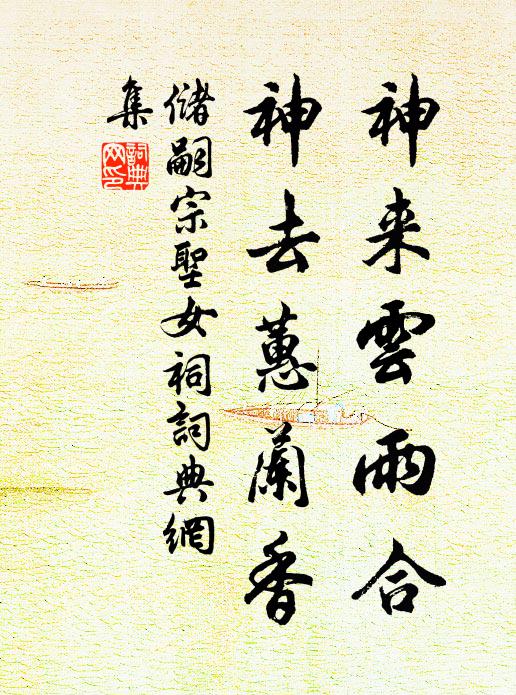 神来雲雨合
神去蕙蘭香
儲嗣宗聖女祠詞典網
集
詞典
网印